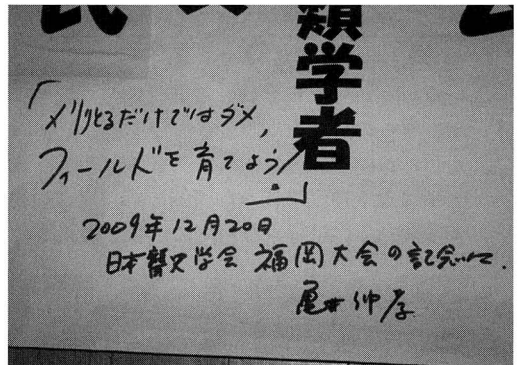 類学者
「刈りとるだけではダメ,
フィールドを育てよう!」
2009年12月20日
日本聾史学会 福岡大会の記念に.
亀井伸孝